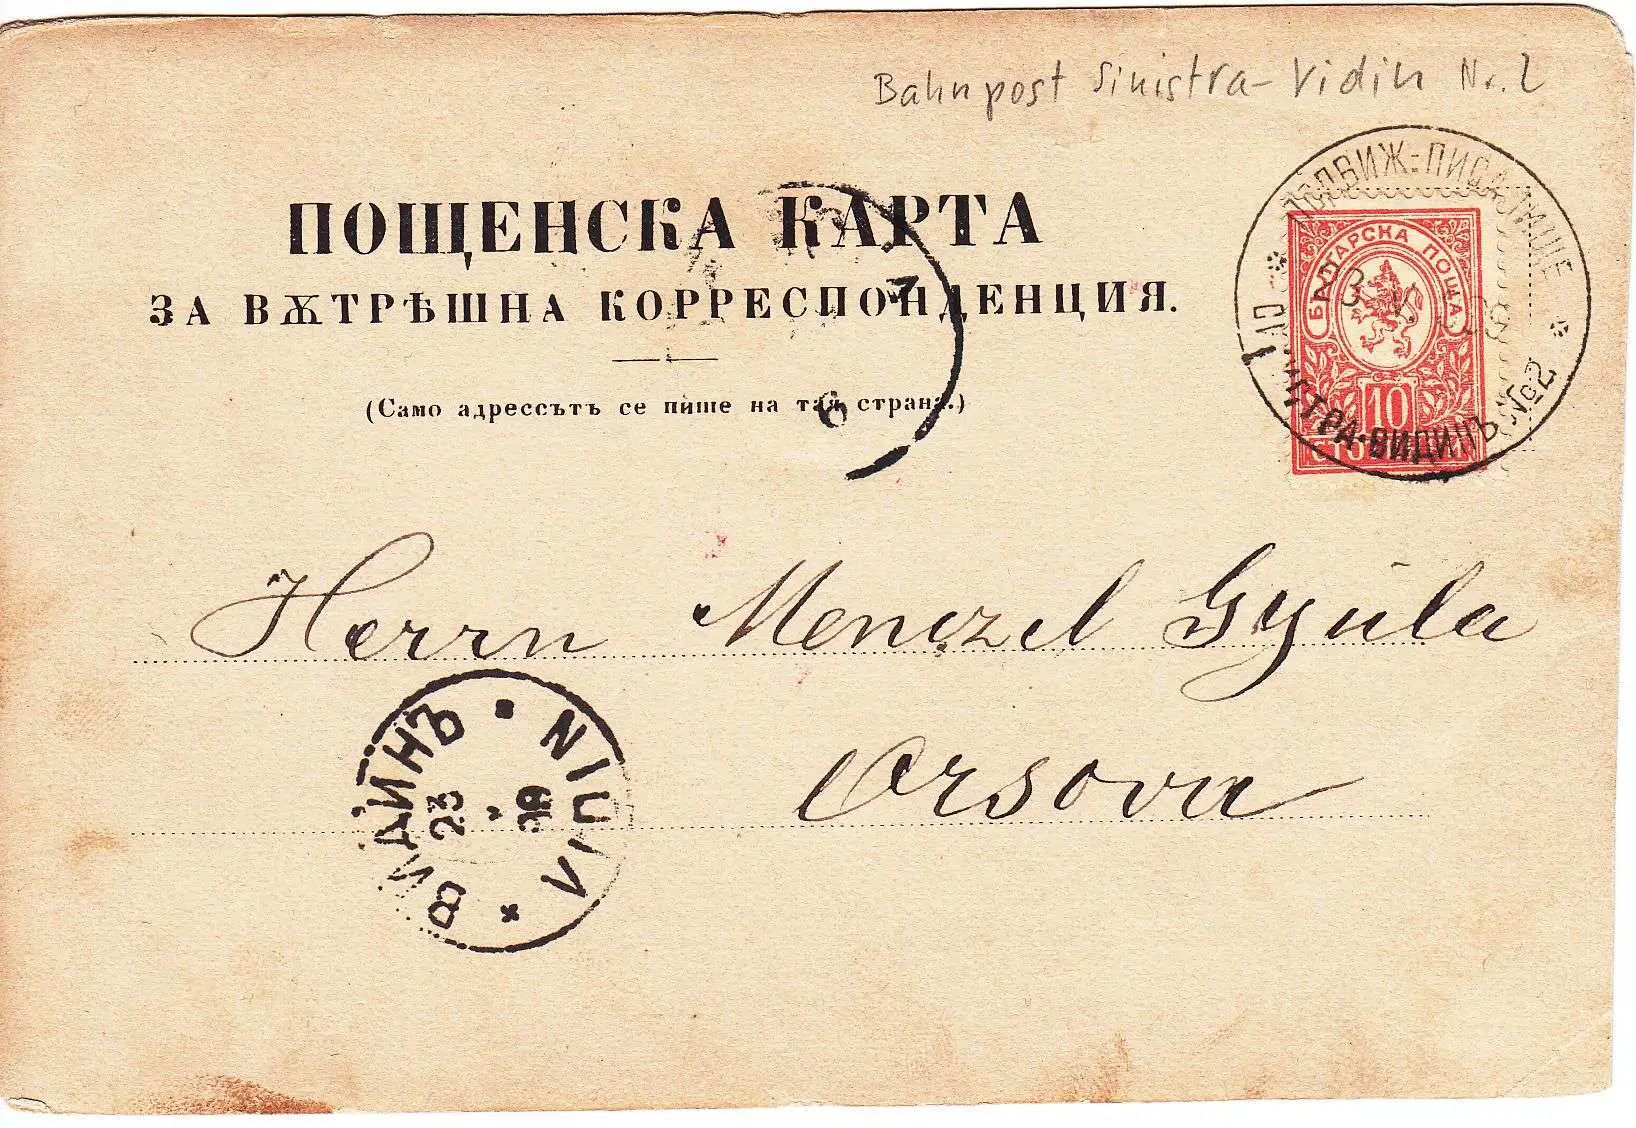 Bahnpost Sinistra-Vidin Nr. 2
ПОДВИЖ=ПИСАЛИЩЕ
СИЛИСТРА-ВИДИНЪ №2
БЪЛГАРСКА ПОЩА
10
ПОЩЕНСКА КАРТА
ЗА ВѪТРѢШНА КОРРЕСПОНДЕНЦИЯ.
(Само адрессътъ се пише на тая страна.)
Herrn Menczel Gyula
Orsova
ВИДИНЪ
23
V
99
VIDIN